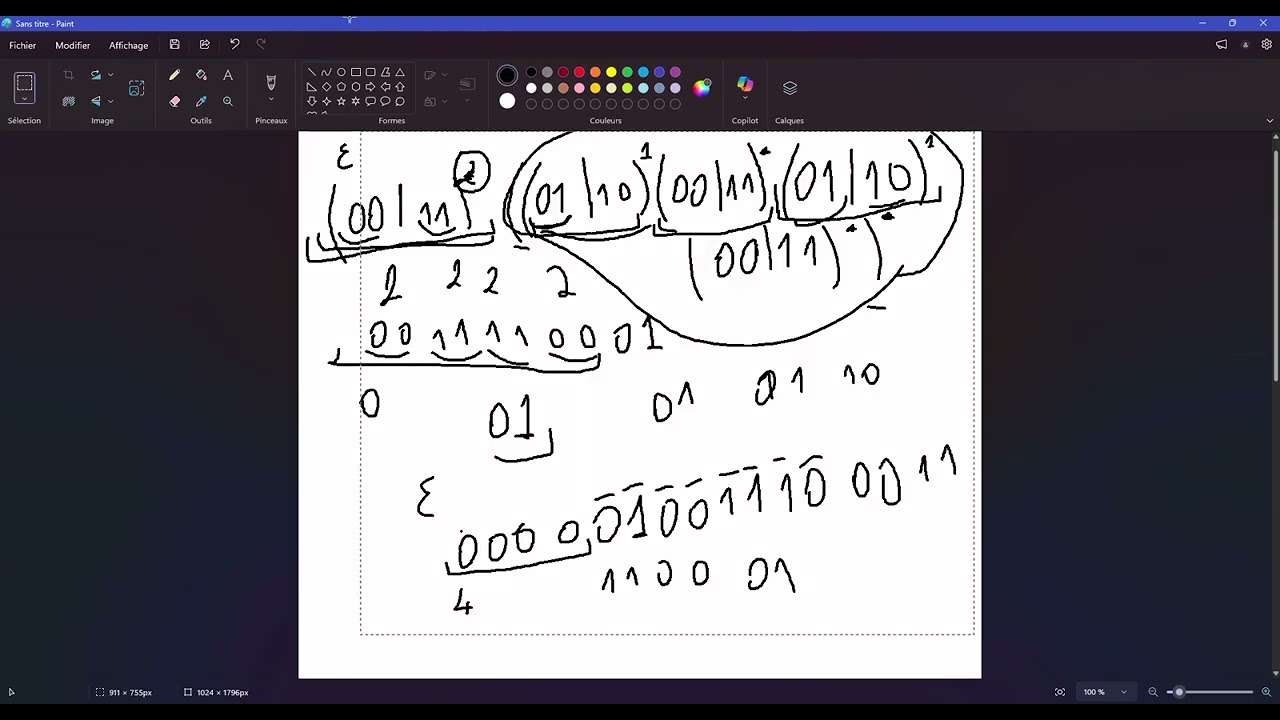 Sans titre - Paint
Fichier Modifier Affichage
Sélection Image Outils Pinceaux Formes Couleurs Copilot Calques
ε
(00|11)* ((01|10)¹(00|11)*(01|10)¹
(00|11)*)*
2 2 2 2
00 11 11 00 01
0 01 01 01 10
ε
0000 0100111000 11
1100 01
4
911 × 755px 1024 × 1796px 100 %